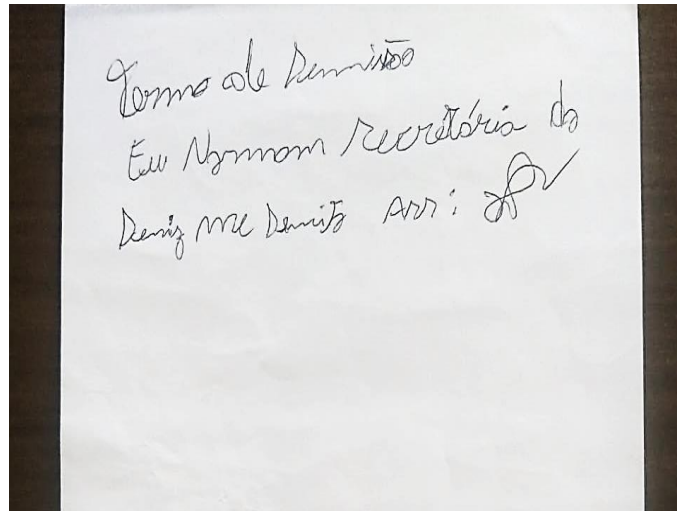 Termo de Demissão
Eu Normam Secretária do
Deniz me Demito Ass: